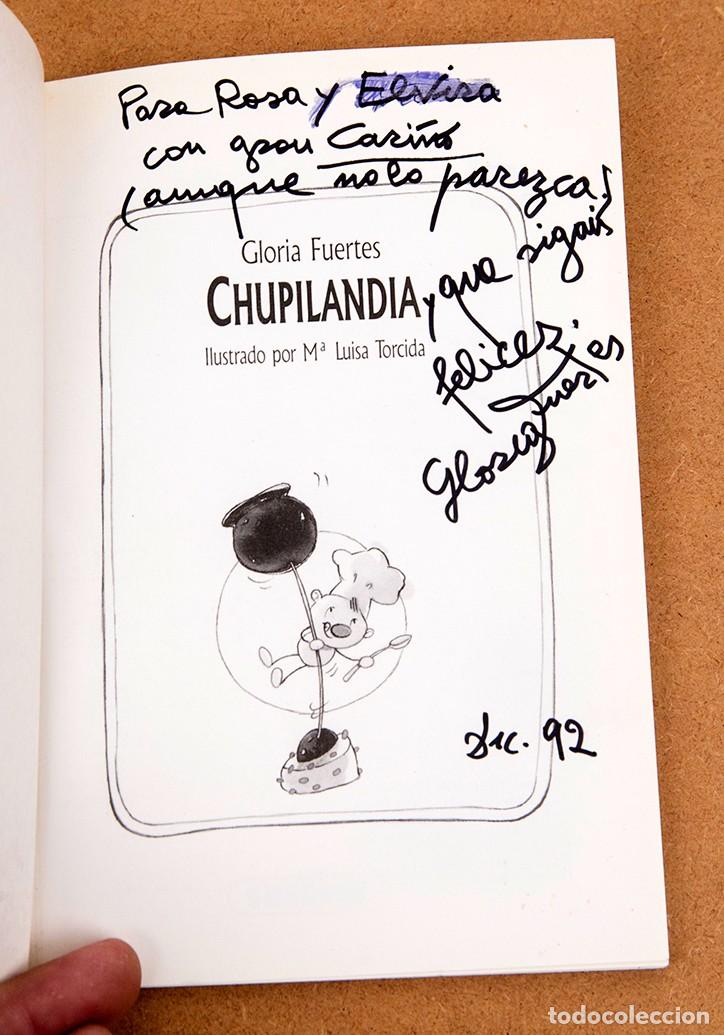 Para Rosa y Elvira
con gran Cariño
(aunque no lo parezca!
y que sigais
felices.
Gloria Fuertes
Gloria Fuertes
CHUPILANDIA
Ilustrado por Mª Luisa Torcida
Dic. 92
todocoleccion